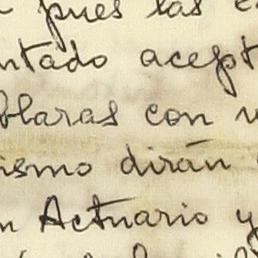 pues las
ntado acept
blaras con
ismo dirán
n Actuario y